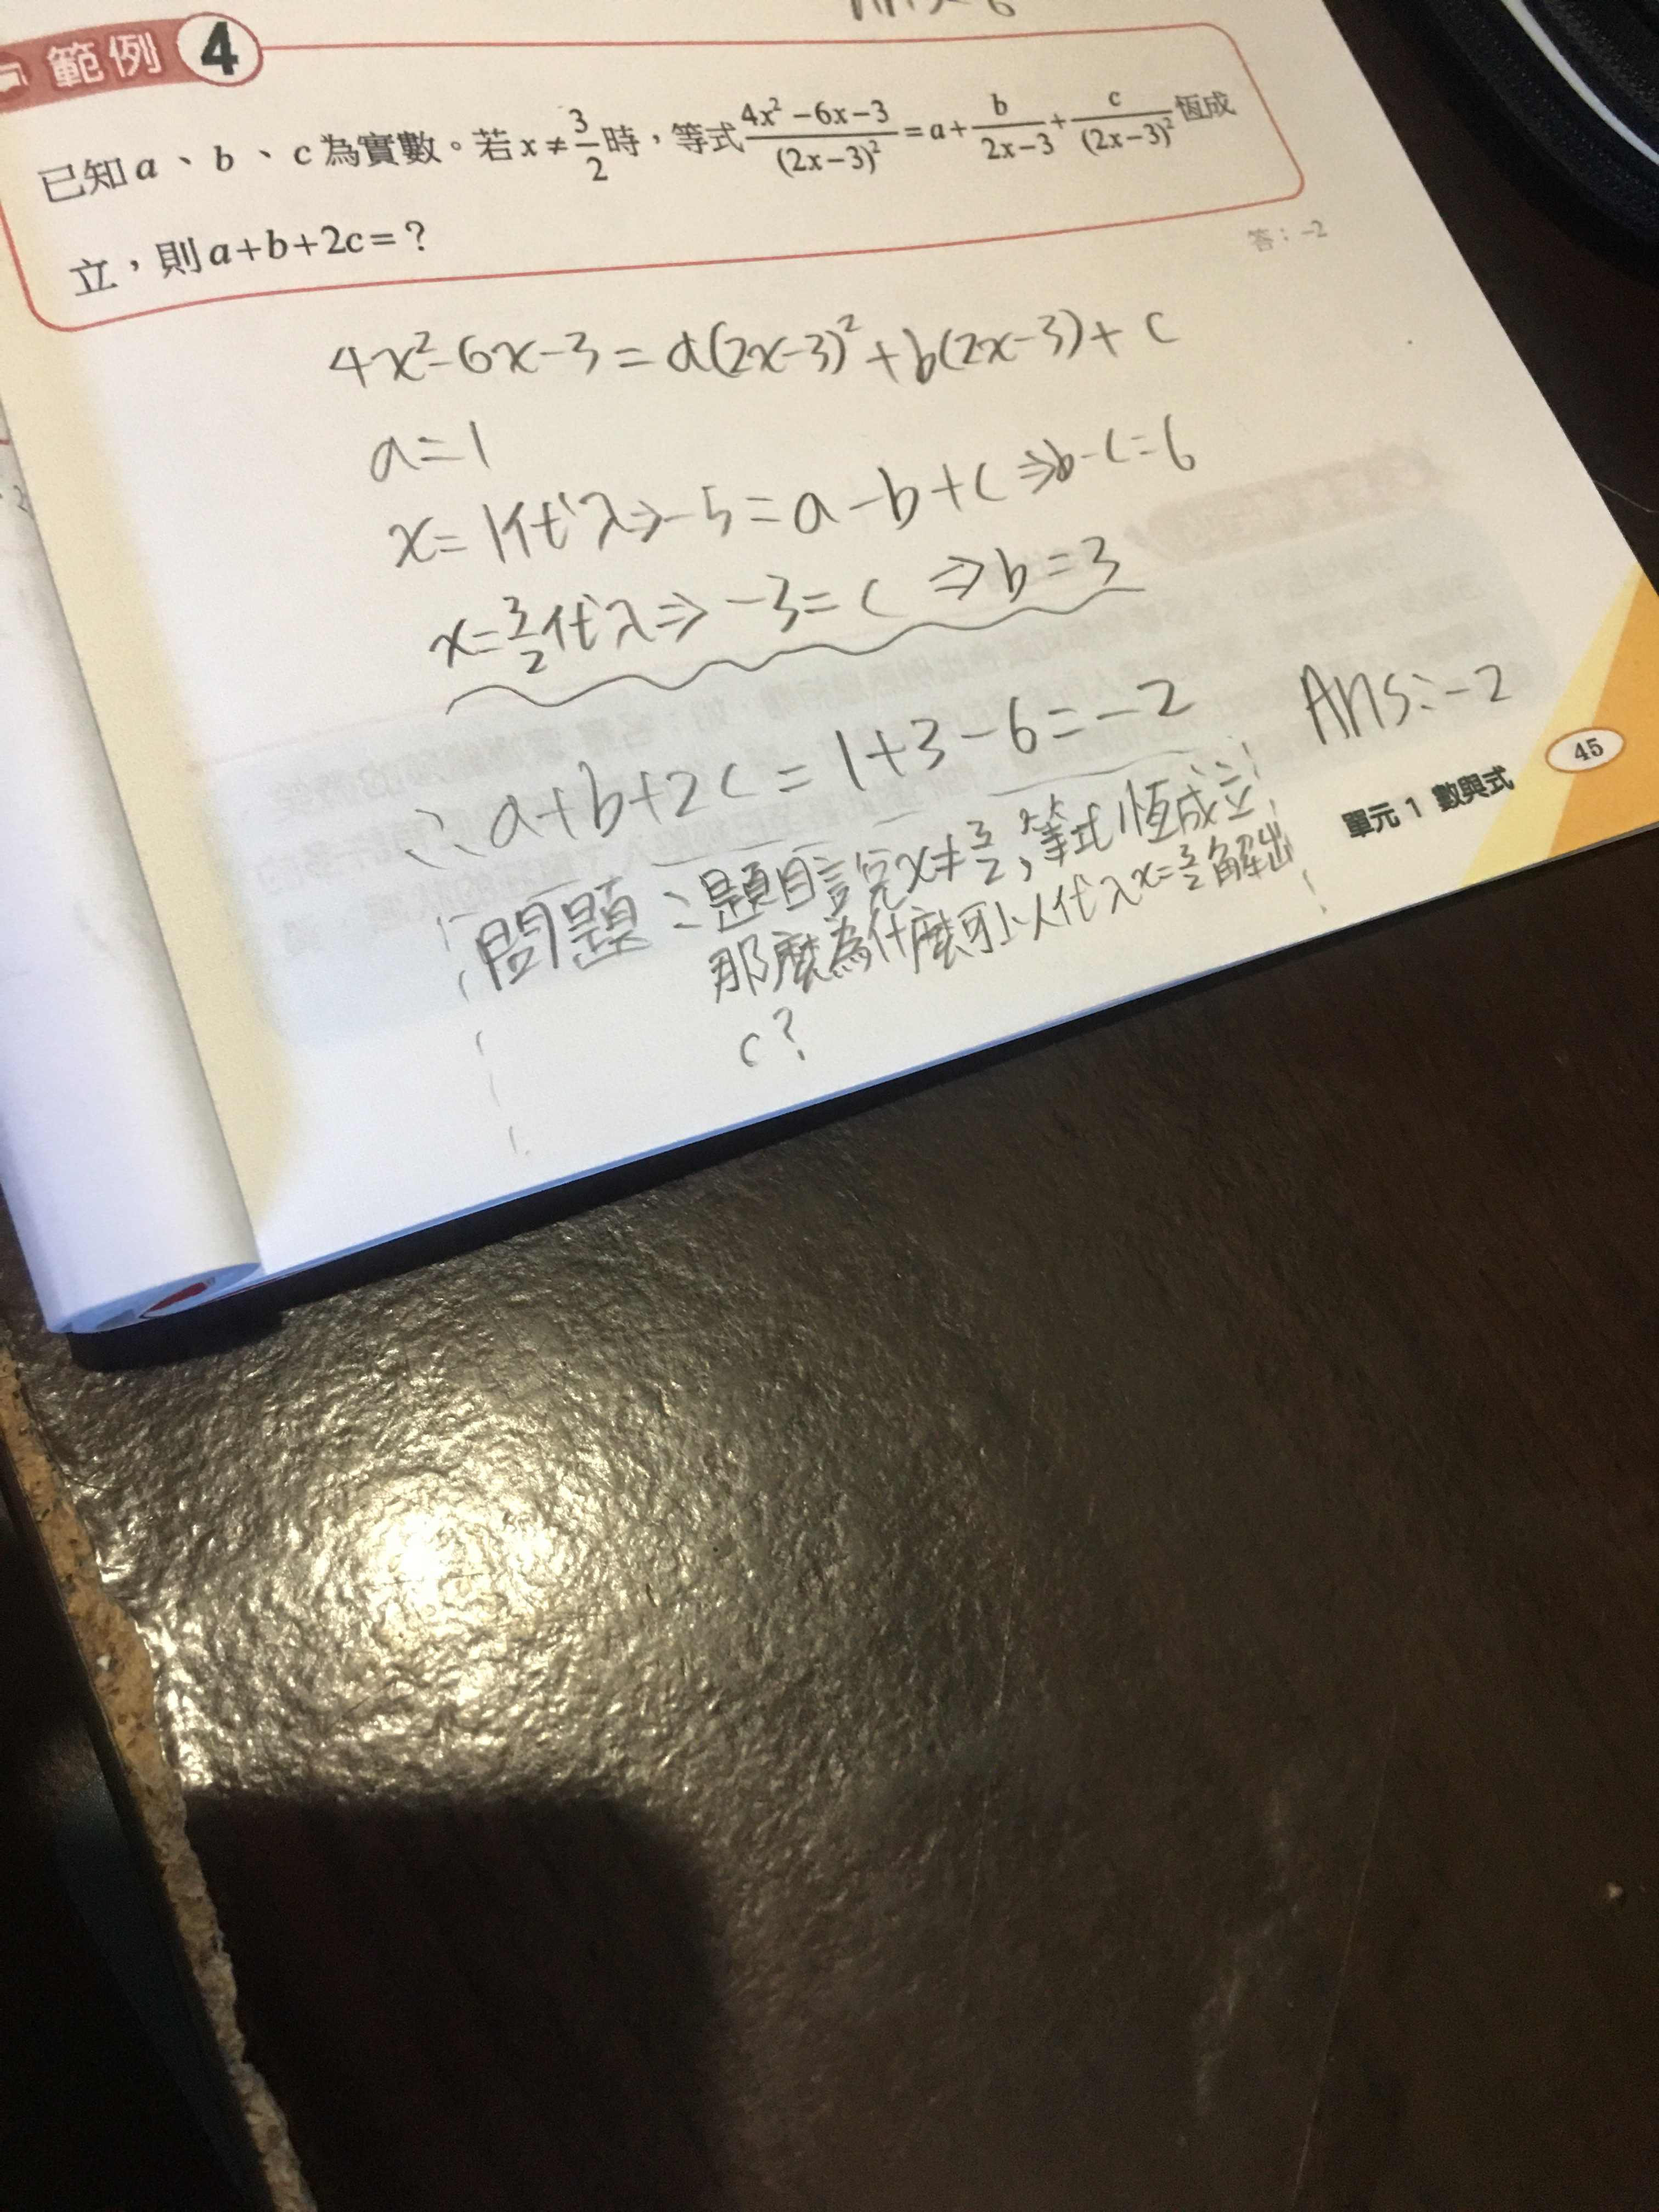 範例 4
已知 a、b、c 為實數。若 x≠3/2 時，等式 (4x²-6x-3)/(2x-3)² = a + b/(2x-3) + c/(2x-3)² 恆成
立，則 a+b+2c=？
答：-2
4x²-6x-3=a(2x-3)²+b(2x-3)+c
a=1
x=1代入⇒-5=a-b+c⇒b-c=6
x=3/2代入⇒-3=c⇒b=3
∴a+b+2c=1+3-6=-2 Ans:-2
問題：題目說x≠3/2，等式恆成立
那麼為什麼可以代入x=3/2解出
c？
45
單元 1 數與式